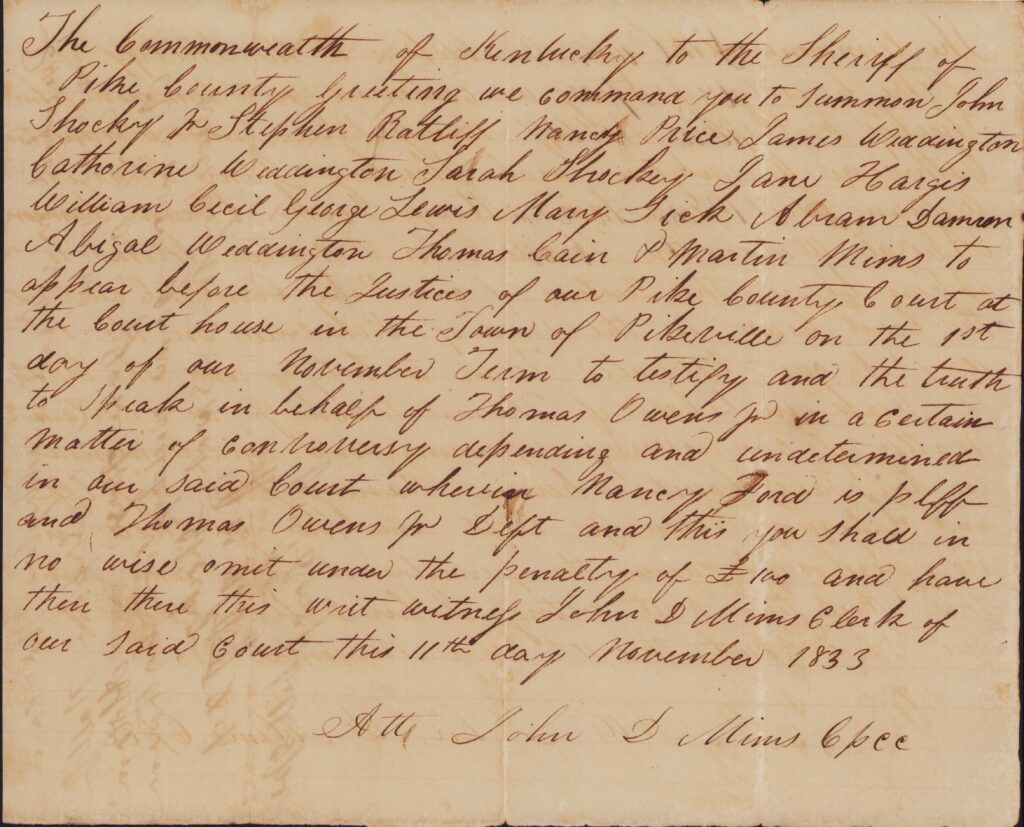 The Commonwealth of Kentucky to the Sheriff of
Pike County Greeting we command you to Summon John
Shocky Jr Stephen Ratliff Nancy Price James Weddington
Catherine Weddington Sarah Shockey Jane Hargis
William Cecil George Lewis Mary Abram Damron
Abigal Weddington Thomas Cain & Martin Mims to
appear before the Justices of our Pike County Court at
the Court house in the Town of Pikeville on the 1st
day of our November Term to testify and the truth
to Speak in behalf of Thomas Owens Jr in a certain
matter of controversy depending and undetermined
in our said Court wherein Nancy Ford is plff
and Thomas Owens Jr Deft and this you shall in
no wise omit under the penalty of £100 and have
then there this writ witness John D Mims Clerk of
our said Court this 11th day November 1833
Atte John D Mims Cpcc